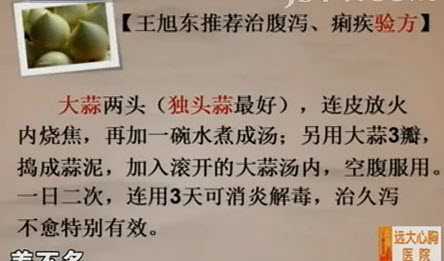 【王旭东推荐治腹泻、痢疾验方】
大蒜两头（独头蒜最好），连皮放火
内烧焦，再加一碗水煮成汤；另用大蒜3瓣，
捣成蒜泥，加入滚开的大蒜汤内，空腹服用。
一日二次，连用3天可消炎解毒，治久泻
不愈特别有效。
远大心胸
医院